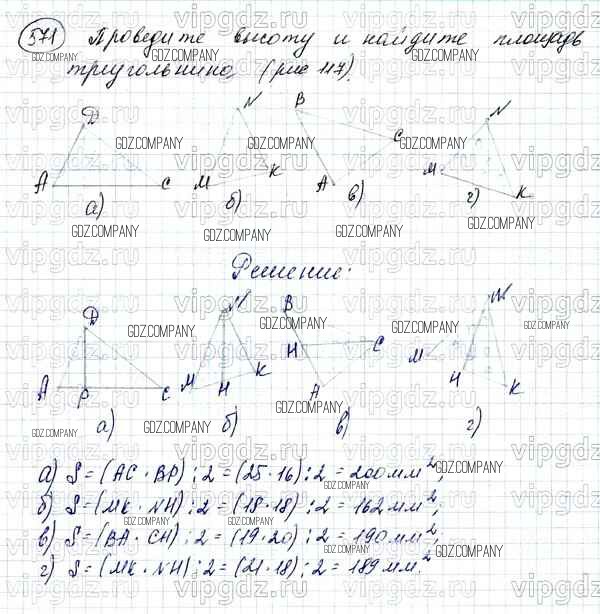 571 Проведите высоту и найдите площадь
треугольника, (рис 117).
А D С
а)
М N К
б)
В С А
в)
М N К
г)
Решение:
А D Р С
а)
М N Н К
б)
В Н С А
в)
М N Н К
г)
а) S = (AC · BP) : 2 = (25 · 16) : 2 = 200 мм²;
б) S = (МК · NH) : 2 = (18 · 18) : 2 = 162 мм²;
в) S = (ВА · СН) : 2 = (19 · 20) : 2 = 190 мм²;
г) S = (МК · NH) : 2 = (21 · 18) : 2 = 189 мм².
vipgdz.ru
GDZ.COMPANY